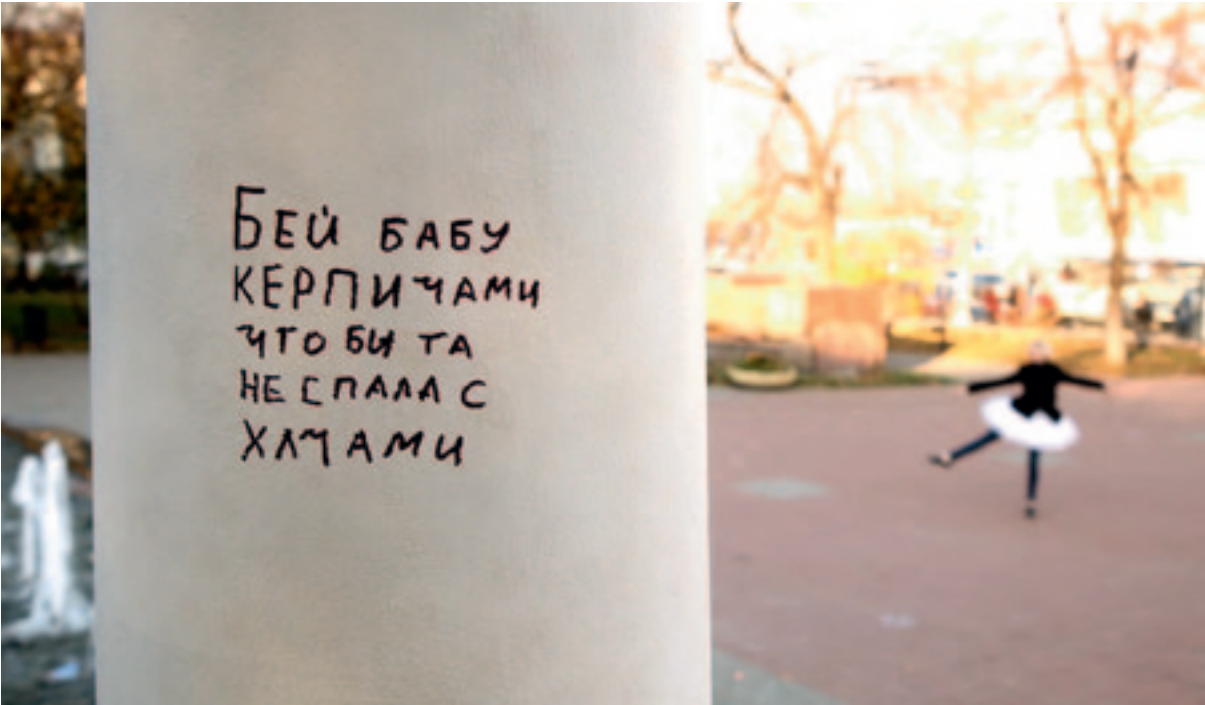 БЕЙ БАБУ
КЕРПИЧАМИ
ЧТО БЫ ТА
НЕ СПАЛА С
ХАЧАМИ